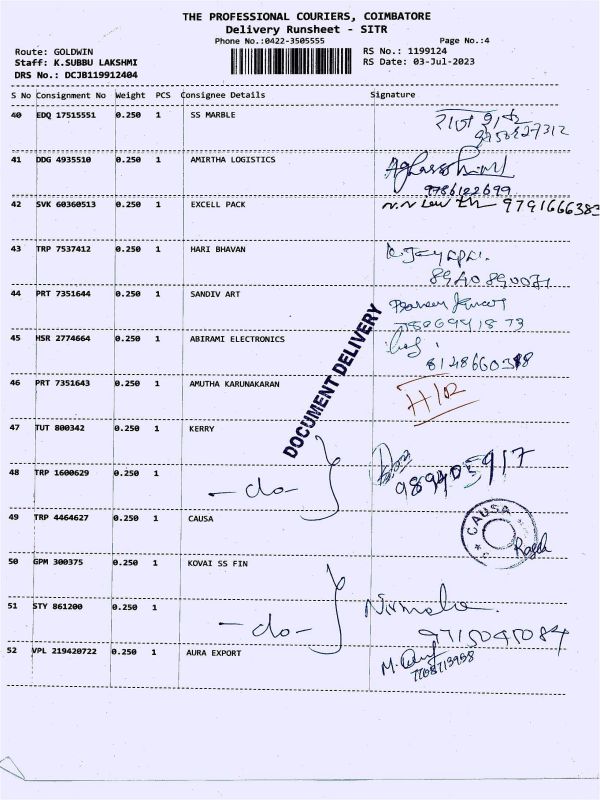 THE PROFESSIONAL COURIERS, COIMBATORE
Delivery Runsheet - SITR
Phone No.:0422-3505555 Page No.:4
Route: GOLDWIN RS No.: 1199124
Staff: K.SUBBU LAKSHMI RS Date: 03-Jul-2023
DRS No.: DCJB119912404
S No Consignment No Weight PCS Consignee Details Signature
40 EDQ 17515551 0.250 1 SS MARBLE
41 DDG 4935510 0.250 1 AMIRTHA LOGISTICS
9786122699
42 SVK 60360513 0.250 1 EXCELL PACK 9791666383
43 TRP 7537412 0.250 1 HARI BHAVAN
8940890071
44 PRT 7351644 0.250 1 SANDIV ART
45 HSR 2774664 0.250 1 ABIRAMI ELECTRONICS
46 PRT 7351643 0.250 1 AMUTHA KARUNAKARAN
DOCUMENT DELIVERY
47 TUT 800342 0.250 1 KERRY
48 TRP 1600629 0.250 1
-do-
49 TRP 4464627 0.250 1 CAUSA
CAUSA
50 GPM 300375 0.250 1 KOVAI SS FIN
51 STY 861200 0.250 1 Nirmala
-do- 9715045084
52 VPL 219420722 0.250 1 AURA EXPORT